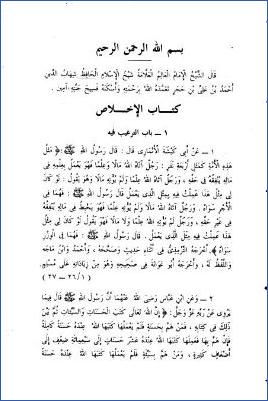 بسم الله الرحمن الرحيم
قَالَ الشَّيْخُ الإِمَامُ العَالِمُ العَلَّامَةُ شَيْخُ الإِسْلَامِ الحَافِظُ شِهَابُ الدِّينِ
أَحْمَدُ بْنُ عَلِيِّ بْنِ حَجَرٍ تَغَمَّدَهُ اللهُ بِرَحْمَتِهِ وَأَسْكَنَهُ فَسِيحَ جَنَّتِهِ آمين .
كتاب الإخلاص
١ ـ باب الترغيب فيه
١ ـ عَنْ أَبِي كَبْشَةَ الأَنْمَارِي قَالَ : قَالَ رَسُولُ اللهِ ﷺ : « مَثَلُ
هَذِهِ الأُمَّةِ كَمَثَلِ أَرْبَعَةِ نَفَرٍ : رَجُلٌ آتَاهُ اللهُ مَالًا وَعِلْمًا فَهُوَ يَعْمَلُ بِعِلْمِهِ فِي
مَالِهِ يُنْفِقُهُ فِي حَقِّهِ ، وَرَجُلٌ آتَاهُ اللهُ عِلْمًا وَلَمْ يُؤْتِهِ مَالًا وَهُوَ يَقُولُ : لَوْ كَانَ
لِي مِثْلُ هَذَا عَمِلْتُ فِيهِ بِمِثْلِ الَّذِي يَعْمَلُ . قَالَ رَسُولُ اللهِ ﷺ : فَهُمَا فِي
الأَجْرِ سَوَاءٌ . وَرَجُلٌ آتَاهُ اللهُ مَالًا وَلَمْ يُؤْتِهِ عِلْمًا فَهُوَ يَخْبِطُ فِي مَالِهِ يُنْفِقُهُ
فِي غَيْرِ حَقِّهِ ، وَرَجُلٌ لَمْ يُؤْتِهِ اللهُ عِلْمًا وَلَا مَالًا وَهُوَ يَقُولُ لَوْ كَانَ لِي مِثْلُ
هَذَا عَمِلْتُ فِيهِ مِثْلَ الَّذِي يَعْمَلُ . قَالَ رَسُولُ اللهِ ﷺ : فَهُمَا فِي الْوِزْرِ
سَوَاءٌ » . أَخْرَجَهُ التِّرْمِذِيُّ فِي أَثْنَاءِ حَدِيثٍ وَصَحَّحَهُ ، وَأَحْمَدُ وَابْنُ مَاجَه
وَاللَّفْظُ لَهُ ، وَأَخْرَجَهُ أَبُو عَوَانَةَ فِي صَحِيحِهِ وَهُوَ مِنْ زِيَادَاتِهِ عَلَى مُسْلِمٍ
( ٢٦/١ ـ ٢٧ ) .
٢ ـ وَعَنِ ابْنِ عَبَّاسٍ رَضِيَ اللهُ عَنْهُمَا أَنَّ رَسُولَ اللهِ ﷺ قَالَ فِيمَا
يَرْوِي عَنْ رَبِّهِ عَزَّ وَجَلَّ : « إِنَّ اللهَ تَعَالَى كَتَبَ الْحَسَنَاتِ وَالسَّيِّئَاتِ ثُمَّ بَيَّنَ
ذَلِكَ فِي كِتَابِهِ ، فَمَنْ هَمَّ بِحَسَنَةٍ فَلَمْ يَعْمَلْهَا كَتَبَهَا اللهُ عِنْدَهُ حَسَنَةً كَامِلَةً
فَإِنْ هَمَّ بِهَا فَعَمِلَهَا كَتَبَهَا اللهُ عِنْدَهُ عَشْرَ حَسَنَاتٍ إِلَى سَبْعِمِائَةِ ضِعْفٍ إِلَى
أَضْعَافٍ كَثِيرَةٍ ، وَمَنْ هَمَّ بِسَيِّئَةٍ فَلَمْ يَعْمَلْهَا كَتَبَهَا اللهُ عِنْدَهُ حَسَنَةً